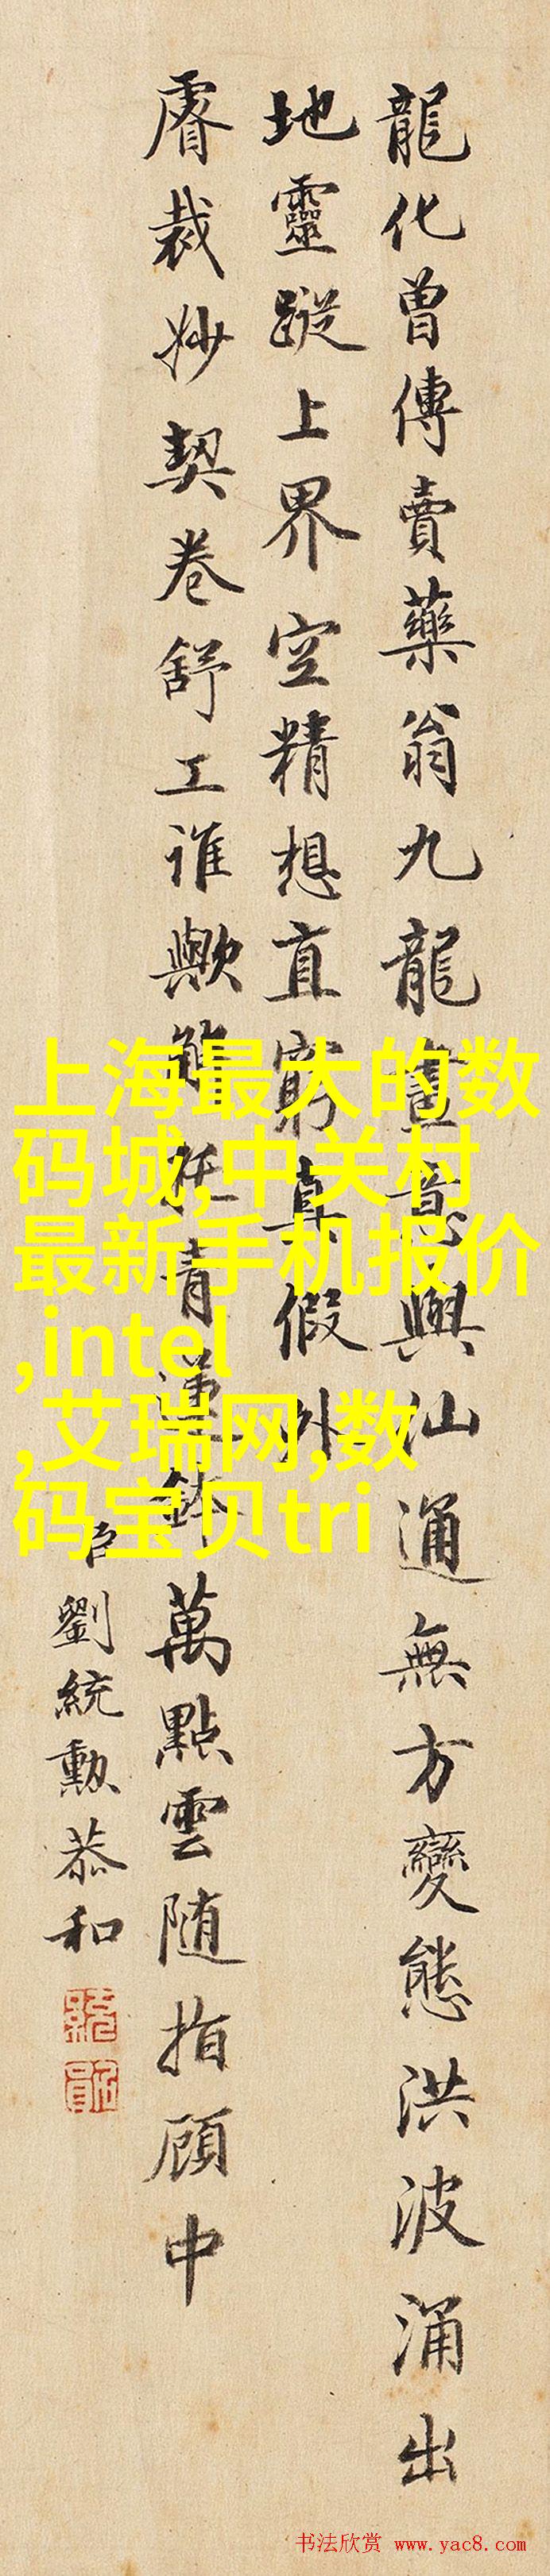 龍化曾傳賣藥翁九龍畫意與仙通無方變態洪波涌出
地靈蹤上界空精想直窮真假外
睿裁妙契卷舒工誰歟能托青蓮鉢萬點雲随指顧中
臣劉統勳恭和
上海最大的数
码城,中关村
最新手机报价
,intel
,艾瑞网,数
码宝贝tri
书法欣赏 www.yac8.com